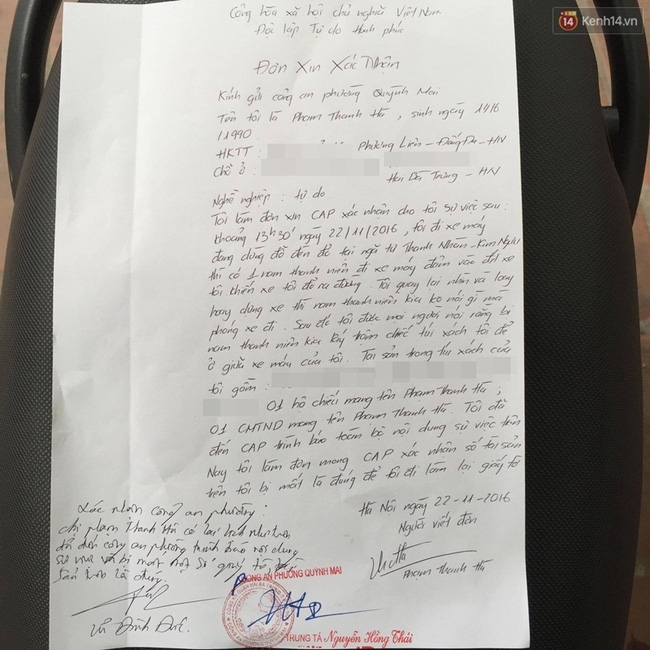 14 Kenh14.vn
Cộng hòa xã hội chủ nghĩa Việt Nam
Độc lập Tự do Hạnh phúc
Đơn Xin Xác Nhận
Kính gửi công an phường Quỳnh Mai
Tên tôi là Phạm Thanh Hà, sinh ngày 14/6
/1990
HKTT : Phương Liên - Đống Đa - HN
Chỗ ở : Hai Bà Trưng - HN
Nghề nghiệp : tự do
Tôi làm đơn xin CAP xác nhận cho tôi sự việc sau :
khoảng 13h30' ngày 22/11/2016, tôi đi xe máy
đang dừng đỗ đèn đỏ tại ngã tư Thanh Nhàn - Kim Ngưu
thì có 1 nam thanh niên đi xe máy đâm vào đít xe
tôi khiến xe tôi đổ ra đường. Tôi quay lại nhìn và loay
hoay dừng xe thì nam thanh niên kia ko nói gì mà
phóng xe đi. Sau đó tôi được mọi người nói rằng bị
nam thanh niên kia lấy trộm chiếc túi xách tôi để
ở giữa xe máy của tôi. Tài sản trong túi xách của
tôi gồm :
01 hộ chiếu mang tên Phạm Thanh Hà,
01 CMTND mang tên Phạm Thanh Hà. Tôi đã
đến CAP trình báo toàn bộ nội dung sự việc trên
Nay tôi làm đơn mong CAP xác nhận số tài sản
trên tôi bị mất là đúng để tôi đi làm lại giấy tờ
Hà Nội ngày 22-11-2016
Người viết đơn
Phạm Thanh Hà
Xác nhận công an phường :
chị Phạm Thanh Hà có lai lịch như trên
đã đến công an phường trình báo nội dung
sự việc và bị mất một số giấy tờ,
sản trên là đúng.
Vũ Đình Đức
CÔNG AN PHƯỜNG QUỲNH MAI
TRUNG TÁ Nguyễn Hồng Thái